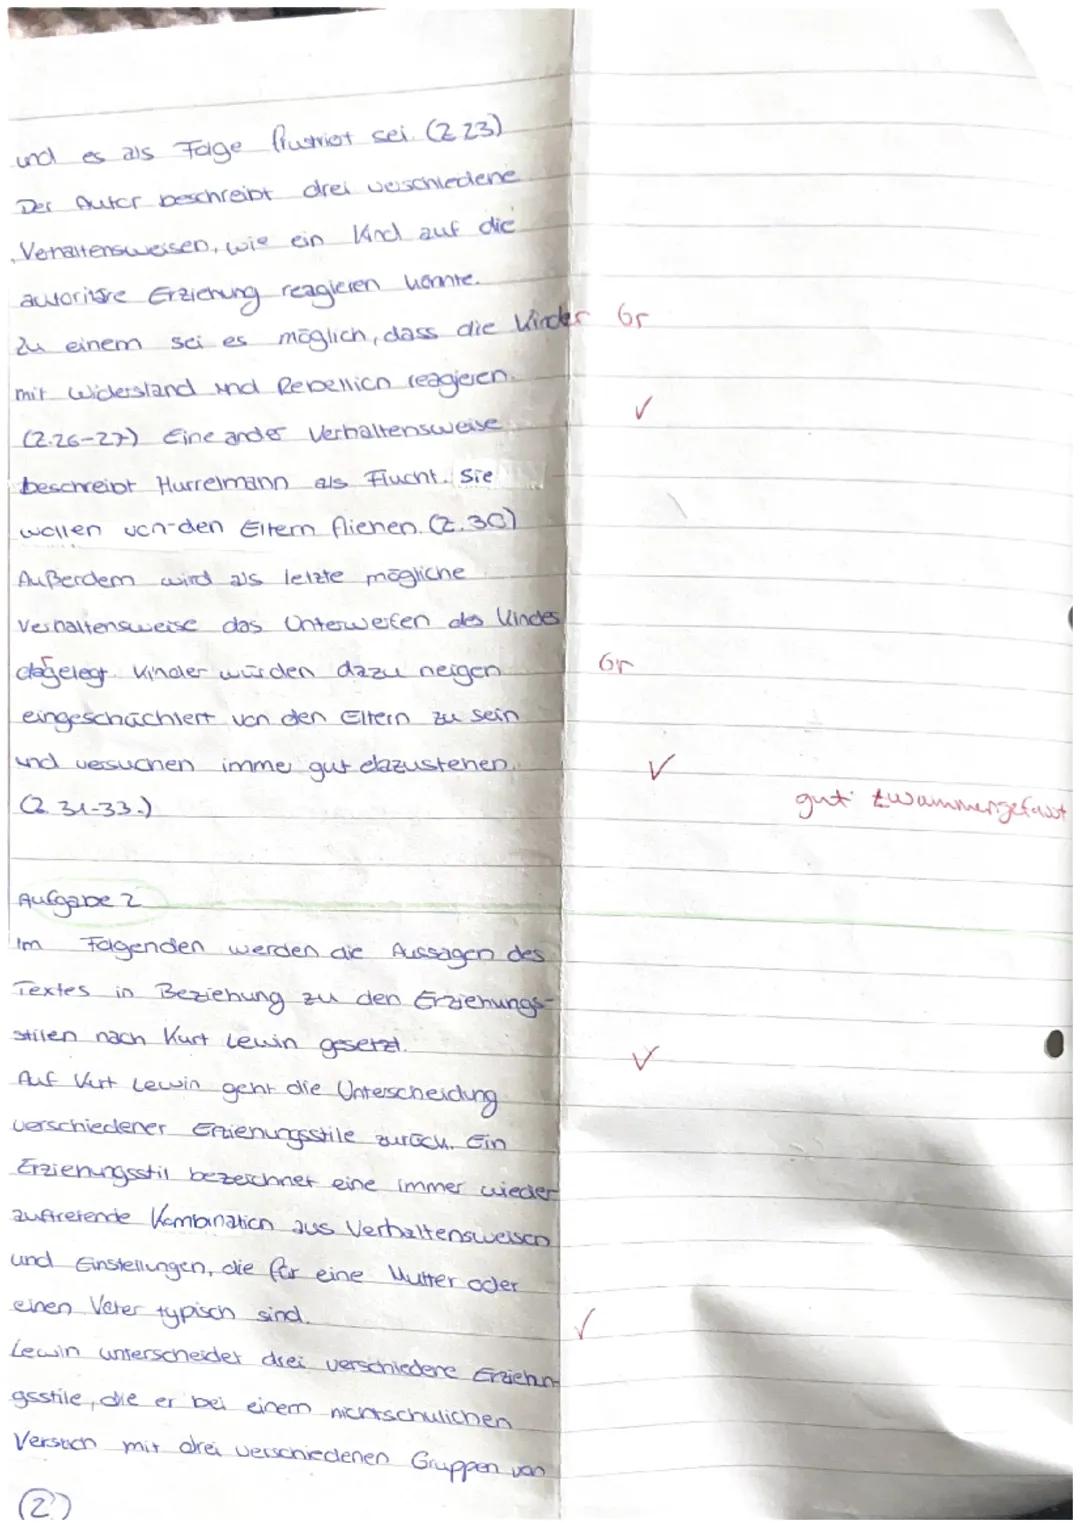 und es als Folge frustriert sei. (Z 23)
Der Autor beschreibt drei verschiedene
Verhaltensweisen, wie ein Kind auf die
autoritäre Erziehung reagieren könnte.
Zu einem sei es möglich, dass die Kinder Gr
mit Widerstand und Rebellion reagieren.
(Z.26-27) Eine ander Verhaltensweise
beschreibt Hurrelmann als Flucht. Sie
wollen von den Eltern fliehen. (Z.30)
Außerdem wird als letzte mögliche
Verhaltensweise das Unterwerfen des Kindes
dagelegt. Kinder würden dazu neigen Gr
eingeschüchtert von den Eltern zu sein
und vesuchen imme gut dazustehen.
(Z. 31-33.)
gut zusammengefasst
Aufgabe 2
Im Folgenden werden die Aussagen des
Textes in Beziehung zu den Erziehungs-
stilen nach Kurt Lewin gesetzt.
Auf Kurt Lewin geht die Unterscheidung
verschiedener Erziehungsstile zurück. Ein
Erziehungsstil bezeichnet eine immer wieder
auftretende Kombination aus Verhaltensweisen
und Einstellungen, die für eine Mutter oder
einen Vater typisch sind.
Lewin unterscheidet drei verschiedene Erziehun-
gsstile, die er bei einem nichtschulichen
Versuch mit drei verschiedenen Gruppen von
(2.)